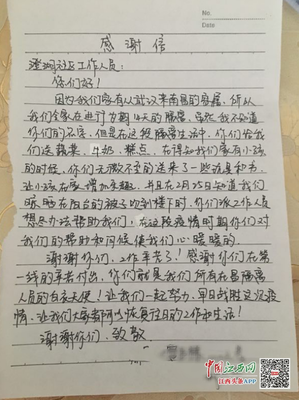 No.
Date
感谢信
澄湖社区工作人员:
你们好!
因为我们家有从武汉来南昌的客人,所以
我们全家在进行为期14天的隔离,虽然我不知道
你们的名字,但是在这段隔离生活中,你们给我
们送蔬菜、牛奶、糕点。在得知我们家有小孩
的时候,你们无微不至的送来了一些玩具和书,
让小孩在家增加乐趣,并且在2月25日知道我们
晾晒在阳台的被子吹到楼下时,你们派工作人员
想尽办法帮助我们,在这段疫情时期你们对
我们的帮助和问候使我们心暖暖的。
谢谢你们,工作辛苦了!感谢你们在第
一线的辛苦付出,你们就是我们所有在家隔离
人员的白衣天使!让我们一起努力,早日战胜这次疫
情,让我们大家都可以恢复往日的工作和生活!
谢谢你们,致敬
中国江西网
江西头条APP